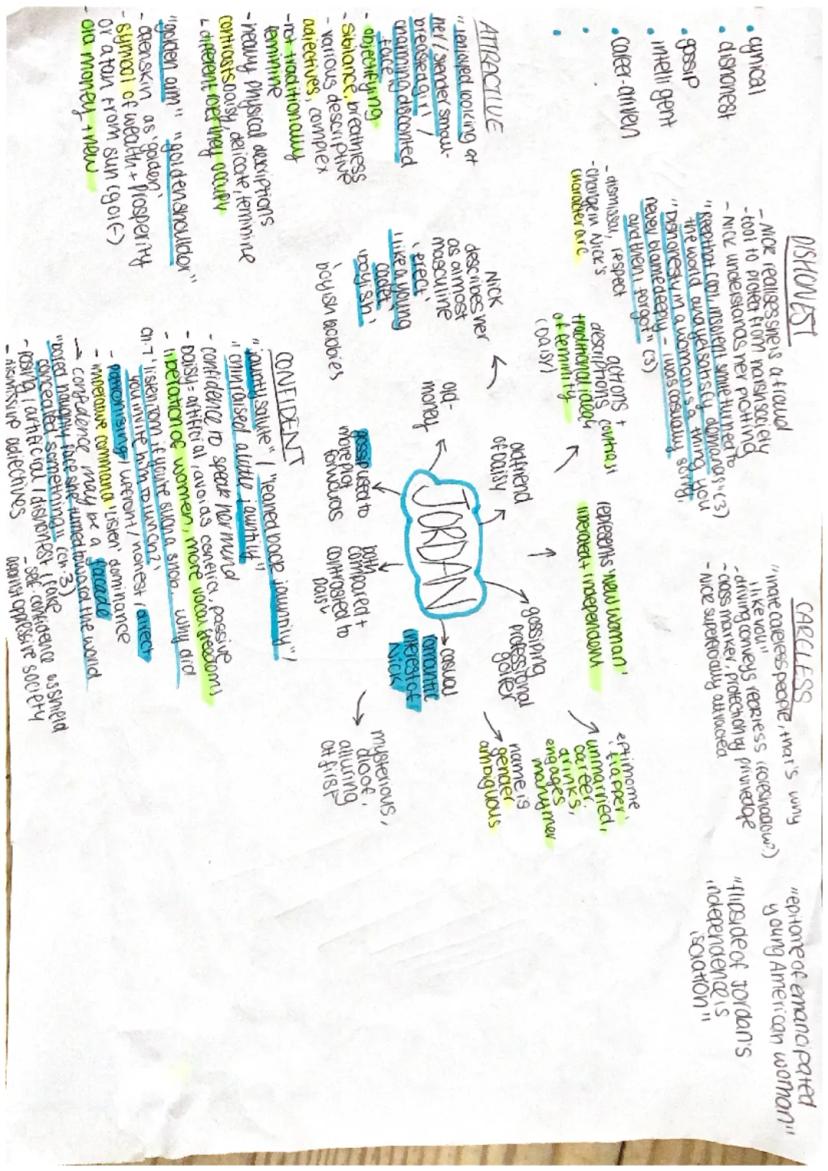 • cynical
• dishonest
• gossip
• intelligent
• career-driven
•
•
DISHONEST
- Nick realises she is a fraud
- tool to protect from harsh society
- Nick understands her plotting
"keep that cool, insolent smile turned to
the world and yet satisfy demands" (3)
"Dishonesty in a woman is a thing you
never blame deeply - I was casually sorry,
and then I forgot" (3)
- dismissal, respect
- change in Nick's
character arc
CARELESS
"I hate careless people, that's why
I like you"
- driving conveys reckless (foreshadow?)
- class marker, protection by priviledge
- Nick superficially attracted
"epitome of emancipated
young American woman"
"flipside of Jordan's
independence is
isolation"
ATTRACTIVE
"I enjoyed looking at
her / slender small-
breasted girl /
charming discontented
face
- objectifying
- sibilance, breathless
- various descriptive
adjectives, complex
- not traditionally
feminine
- heavy physical descriptions
- contrasts Daisy, delicate, feminine
↳ different roles they occupy
"golden arm" "golden shoulder"
- alen skin as 'golden'
- symbol of wealth + prosperity
or a tan from sun (golf)
- old money, + new
actions +
descriptions contrast
traditional ideals
of feminity
(Daisy)
represents 'new woman'
liberated + independent
epitimome
'flapper'
unmarried,
career,
drinks,
engages
many men
name is
gender
ambiguous
Nick
describes her
as almost
masculine
'erect'
'like a young
cadet'
'boyish'
boyish hobbies
old-
money
girlfriend
of Daisy
JORDAN
gossiping
professional
golfer
casual
romantic
interest of
Nick
mysterious,
aloof,
alluring
at first
gossip used to
move plot
forwards
both
compared +
contrasted to
Daisy
CONFIDENT
"jaunty salute" / "leaned back jauntily" /
"chin raised a little jauntily"
- confidence to speak her mind
- Daisy - artificial, avoids conflict, passive
- liberation of women, more vocal freedoms
Ch.7 'listen Tom. if you're such a snob, why did
you invite him to lunch?'
- patronising / upfront / honest / direct
- imperative command 'listen' dominance
→ confidence may be a facade
"bored haughty face she turned toward the world
concealed something" (ch.3)
- posing / artificial / dishonest / fake
- dismissive adjectives
- self-confidence as shield
against oppressive society